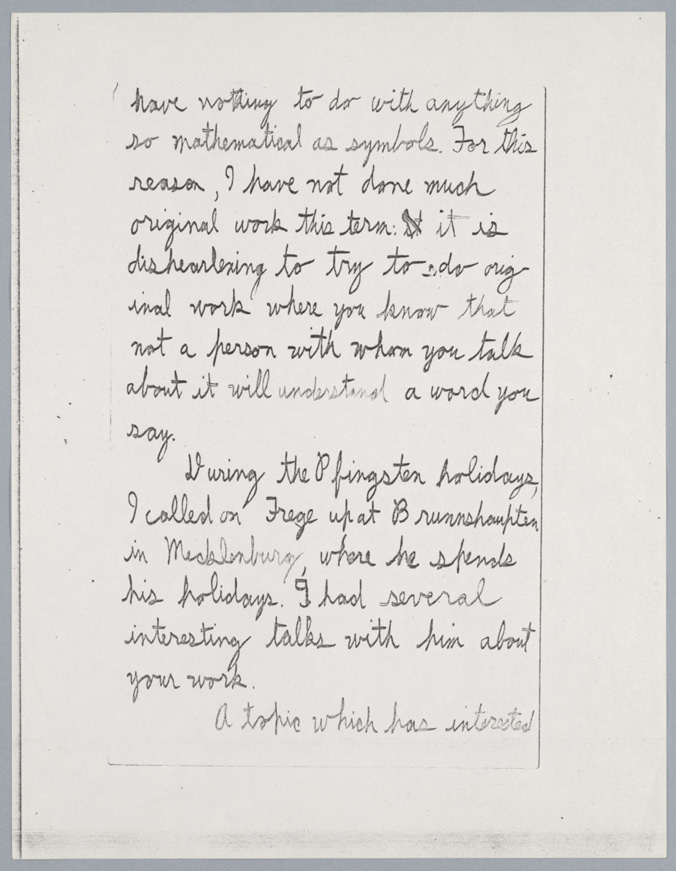 have nothing to do with anything
so mathematical as symbols. For this
reason, I have not done much
original work this term: it is
disheartening to try to do orig-
inal work where you know that
not a person with whom you talk
about it will understand a word you
say.
During the Pfingsten holidays,
I called on Frege up at Brunnshaupten
in Mecklenburg, where he spends
his holidays. I had several
interesting talks with him about
your work.
A topic which has interested